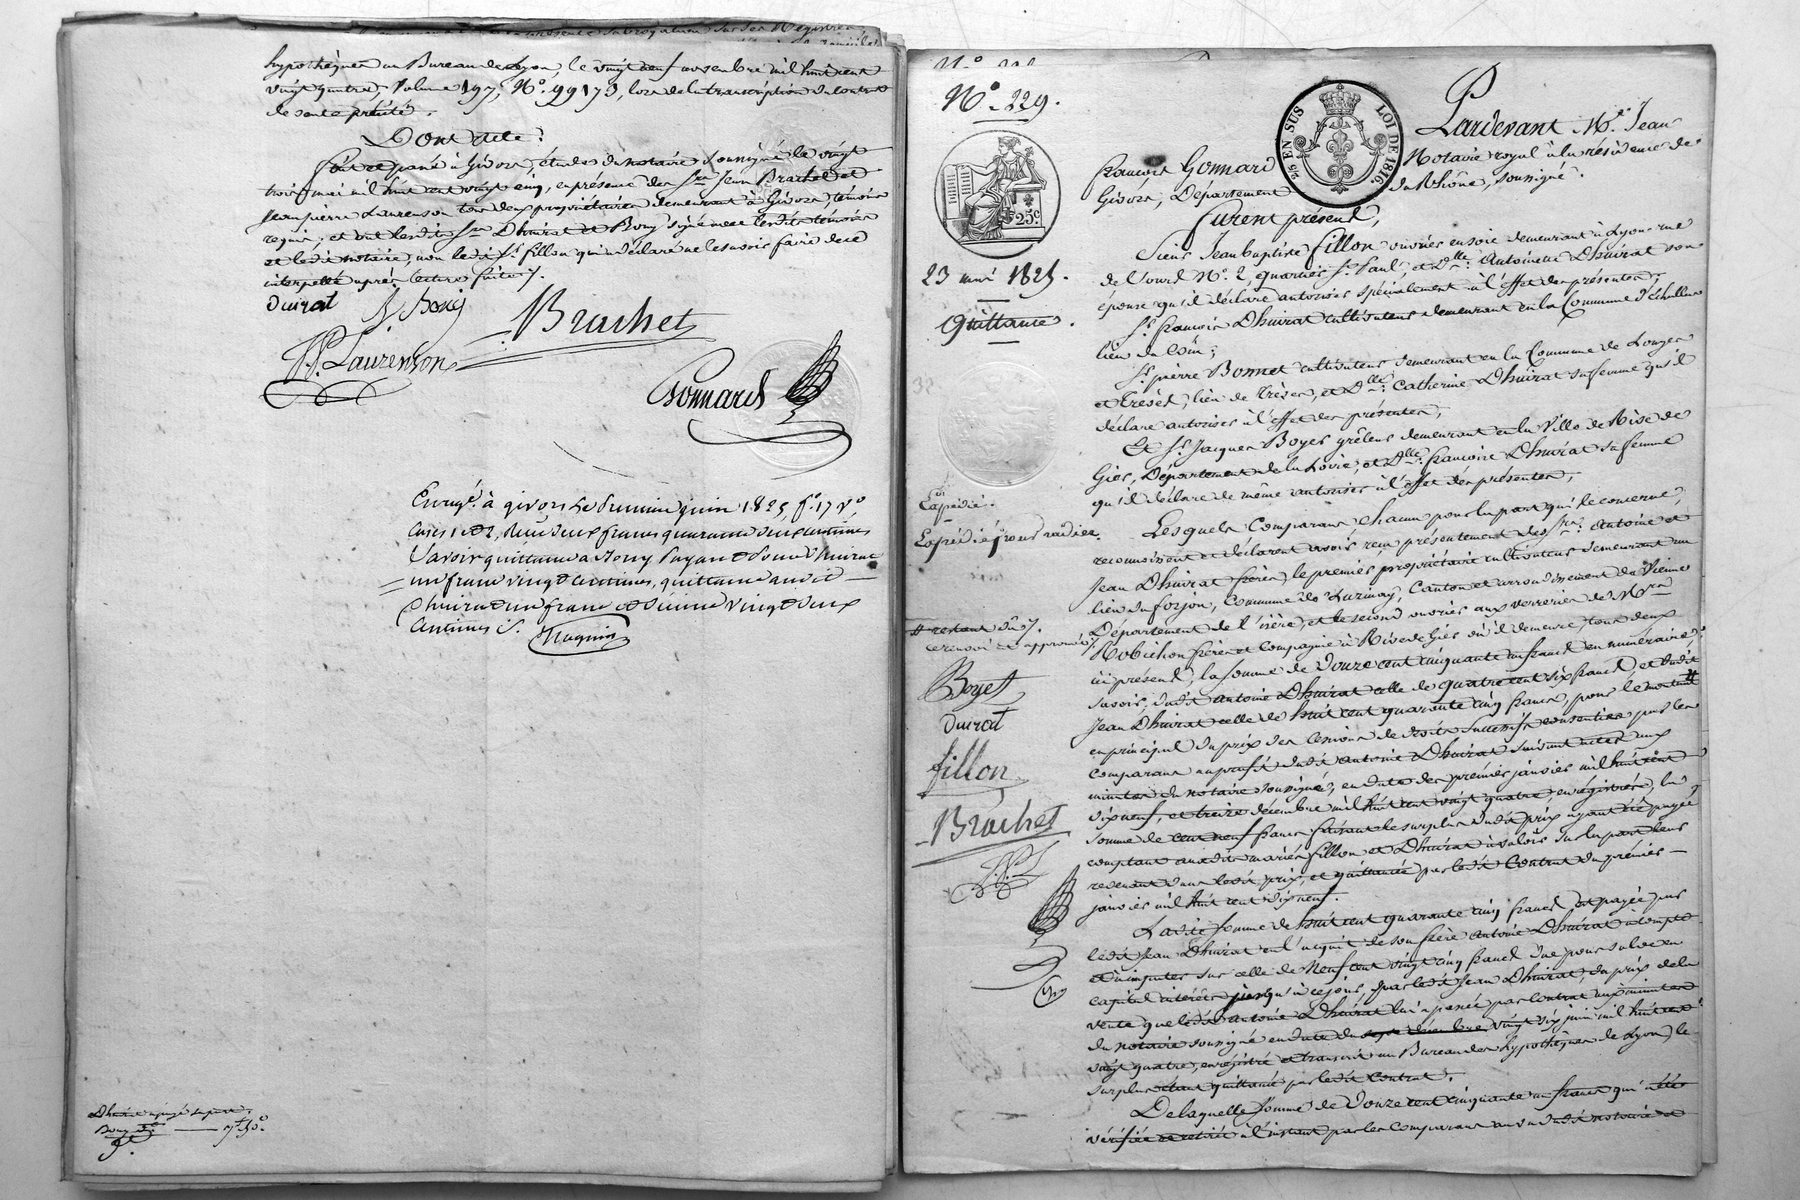 hypothèques au Bureau de Lyon, le vingt neuf novembre mil huit cent
vingt quatre, Volume 197, N.º 99173, lors de la transcription du contrat
de vente précité.
Dont acte.
fait et passé à Givors, étude du notaire soussigné le vingt
trois mai mil huit cent vingt cinq, en présence des Srs Jean Brachet et
Jean pierre Laurenson tous deux propriétaires demeurant à Givors, témoins
requis, et ont lesdits Srs Dhuirat et Bony signé avec lesdits témoins
et ledit notaire, non ledit Sr. fillon qui a déclaré ne le savoir faire de ce
interpellé après lecture faite.
Duirat Bony Brachet
J.P. Laurenson
Gonnard
Enreg.é à givors le juin 1825, f.º 17 v.º
cases 1 et 2, Reçu deux francs quarante deux centimes
Savoir quittance à Bony
un franc vingt centimes, quittance audit
Dhuirat un franc et dixième vingt deux
centimes
N.º 229.
25c
23 mai 1825.
Quittance.
Expédié.
Expédié pour radier.
# restant dû
Boyet
Duirat
fillon
Brachet
J.P.L
EN SUS LOI DE 1816.
Pardevant M.e Jean
françois Gonnard Notaire royal à la résidence de
Givors, Département du Rhône, soussigné.
furent présens,
Sieur Jean baptiste fillon ouvrier en soie demeurant à Lyon rue
de l'ours N.º 2 quartier St. Paul, et Dlle. Antoinette Dhuirat son
épouse qu'il déclare autoriser spécialement à l'effet des présentes.
Sr. françois Dhuirat cultivateur demeurant en la Commune d'échallas
lieu du
Sr. pierre Bonnet cultivateur demeurant en la Commune de Longes
et Trèves, lieu de Trèves, et Dlle. Catherine Dhuirat sa femme qu'il
déclare autoriser à l'effet des présentes,
Et Sr. Jacques Boyer grêleur demeurant en la Ville de Rive de
Gier, Département de la Loire, et Dlle. françoise Dhuirat sa femme
qu'il déclare de même autoriser à l'effet des présentes,
Lesquels Comparans chacun pour la part qui le concerne,
reconnaissent et déclarent avoir reçu présentement des Srs. Antoine et
Jean Dhuirat frères, le premier propriétaire cultivateur demeurant au
lieu du forjon, Commune de Luzinay, Canton et arrondissement de Vienne
Département de l'isère, et le second ouvrier aux verreries de MM.rs
Robichon frères et Compagnie à Rive de Gier où il demeure, tous deux
ici présens, la somme de Douze cent cinquante un francs en numéraire,
savoir, dudit antoine Dhuirat celle de quatre cent six francs et dudit
Jean Dhuirat celle de huit cent quarante cinq francs, pour le montant #
en principal du prix des cessions de droits successifs consenties par les
comparans au profit dudit antoine Dhuirat suivant actes aux
minutes du notaire soussigné, en date des premier janvier mil huit cent
dix neuf, et treize décembre mil huit cent vingt quatre, enregistrés, la
somme de cent neuf francs faisant le surplus dudit prix ayant été payée
comptant auxdits mariés fillon et Dhuirat à valoir sur la part leur
revenant dans ledit prix, et quittancée par ledit Contrat du premier
janvier mil huit cent dix neuf.
Ladite somme de huit cent quarante cinq francs est payée par
ledit Jean Dhuirat en l'acquit de son frère antoine Dhuirat à compte
et à imputer sur celle de Neuf cent vingt cinq francs due pour solde en
capital intérêts jusqu'à ce jour, par ledit Jean Dhuirat, du prix de la
vente que ledit antoine Dhuirat lui a passée par contrat aux minutes
du notaire soussigné en date du sept décembre vingt six juin mil huit cent
vingt quatre, enregistré et transcrit au Bureau des hypothèques de Lyon, le
surplus étant quittancé par ledit contrat.
De laquelle somme de Douze cent cinquante un francs qui a été
vérifiée et retirée à l'instant par les Comparans au vu dudit notaire et